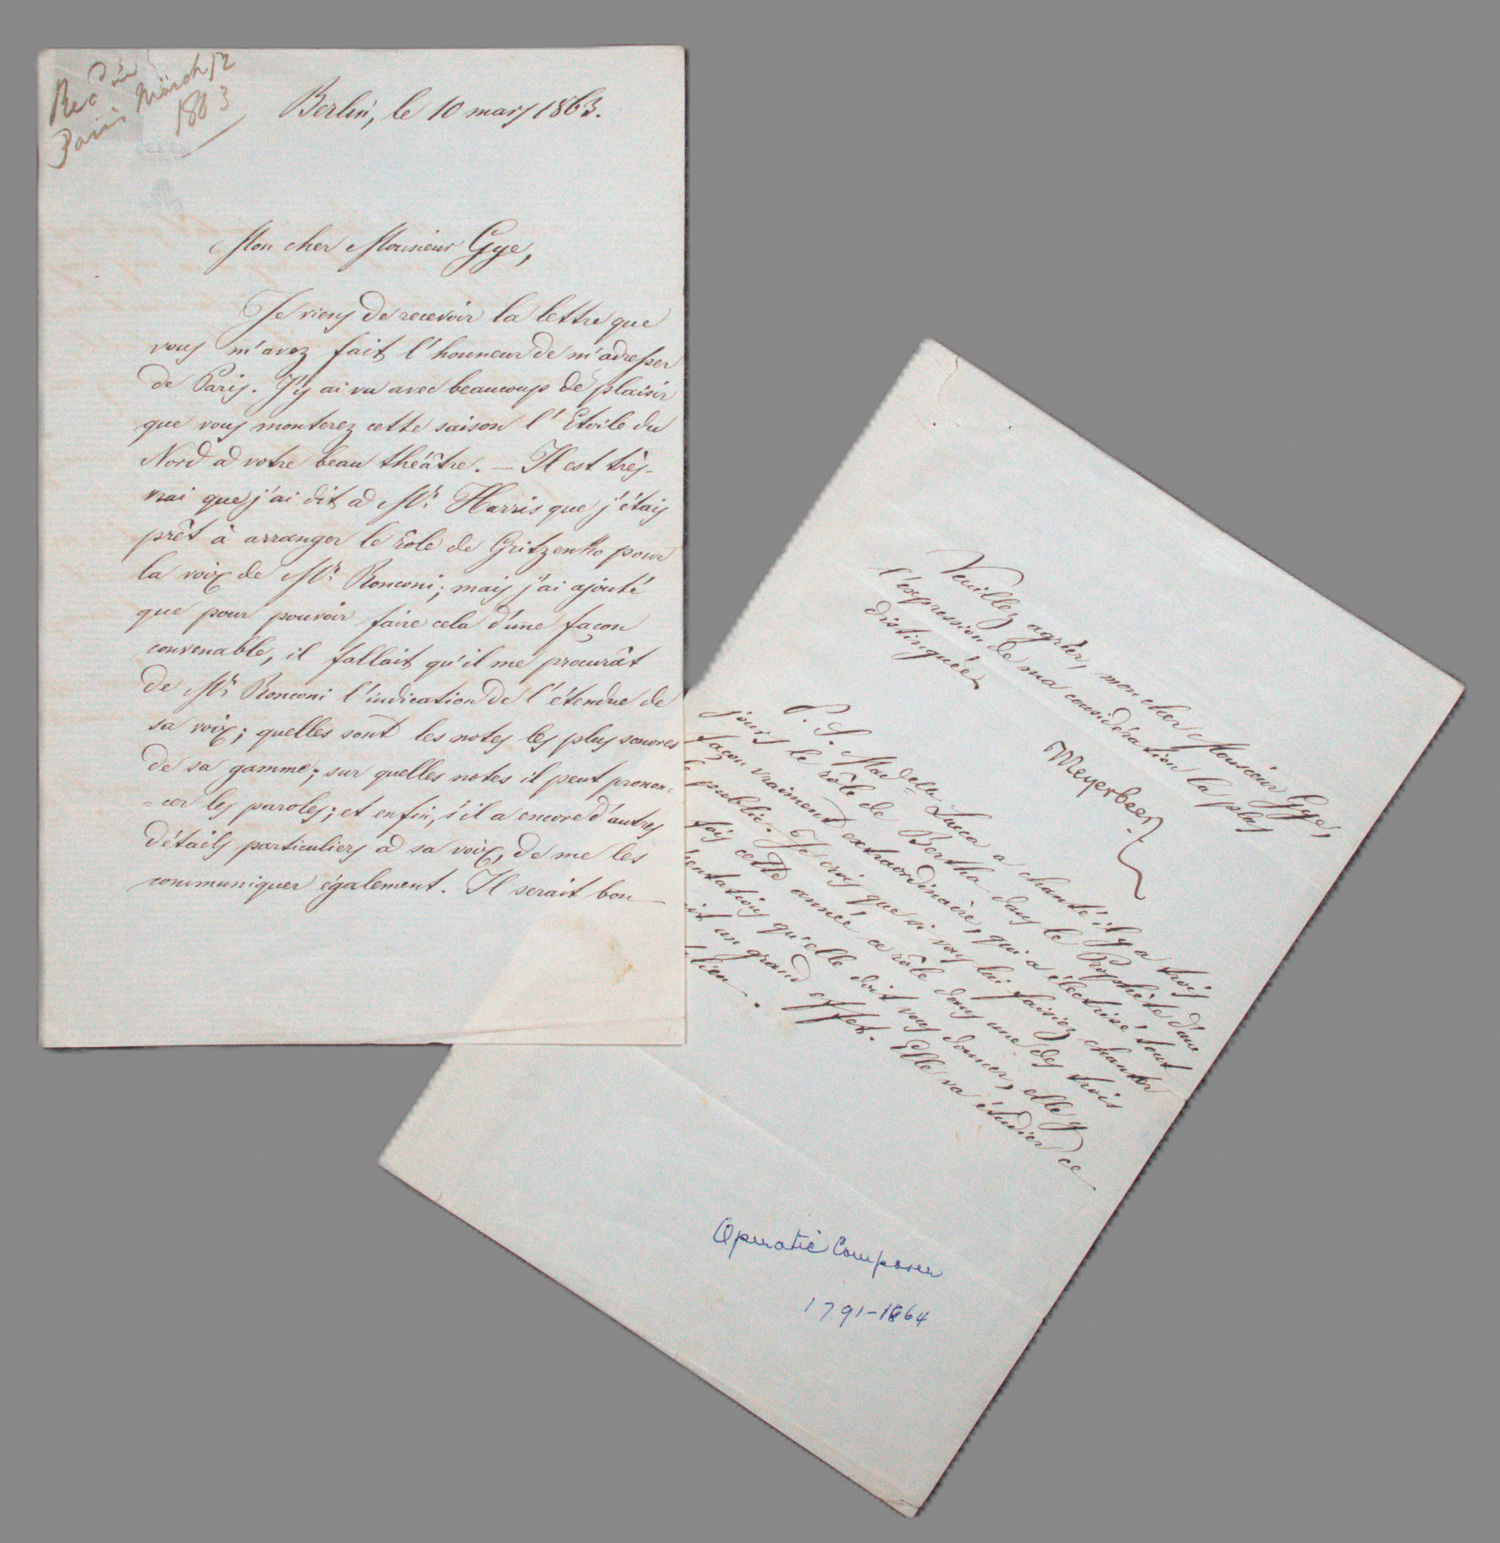 Recd in
Paris March 12
1863
Berlin, le 10 mars 1863.
Mon cher Monsieur Gye,
Je viens de recevoir la lettre que
vous m'avez fait l'honneur de m'adresser
de Paris. J'y ai vu avec beaucoup de plaisir
que vous monterez cette saison l'Etoile du
Nord à votre beau théâtre. — Il est très-
vrai que j'ai dit à Mr. Harris que j'étais
prêt à arranger le rôle de Gritzenko pour
la voix de Mr. Ronconi; mais j'ai ajouté
que pour pouvoir faire cela d'une façon
convenable, il fallait qu'il me procurât
de Mr. Ronconi l'indication de l'étendue de
sa voix; quelles sont les notes les plus sonores
de sa gamme; sur quelles notes il peut pronon-
-cer les paroles; et enfin, s'il a encore d'autres
détails particuliers à sa voix, de me les
communiquer également. Il serait bon
Veuillez agréer, mon cher Monsieur Gye,
l'expression de ma considération la plus
distinguée
Meyerbeer
P. S. Madelle Lucca a chanté il y a trois
jours le rôle de Bertha dans le Prophète d'une
façon vraiment extraordinaire, qui a électrisé tout
le public. Je crois que si vous lui faisiez chanter
fois cette année ce rôle dans une des trois
sentations qu'elle doit vous donner, elle y
it un grand effet. Elle va étudier ce
lien.
Operatic Composer
1791-1864